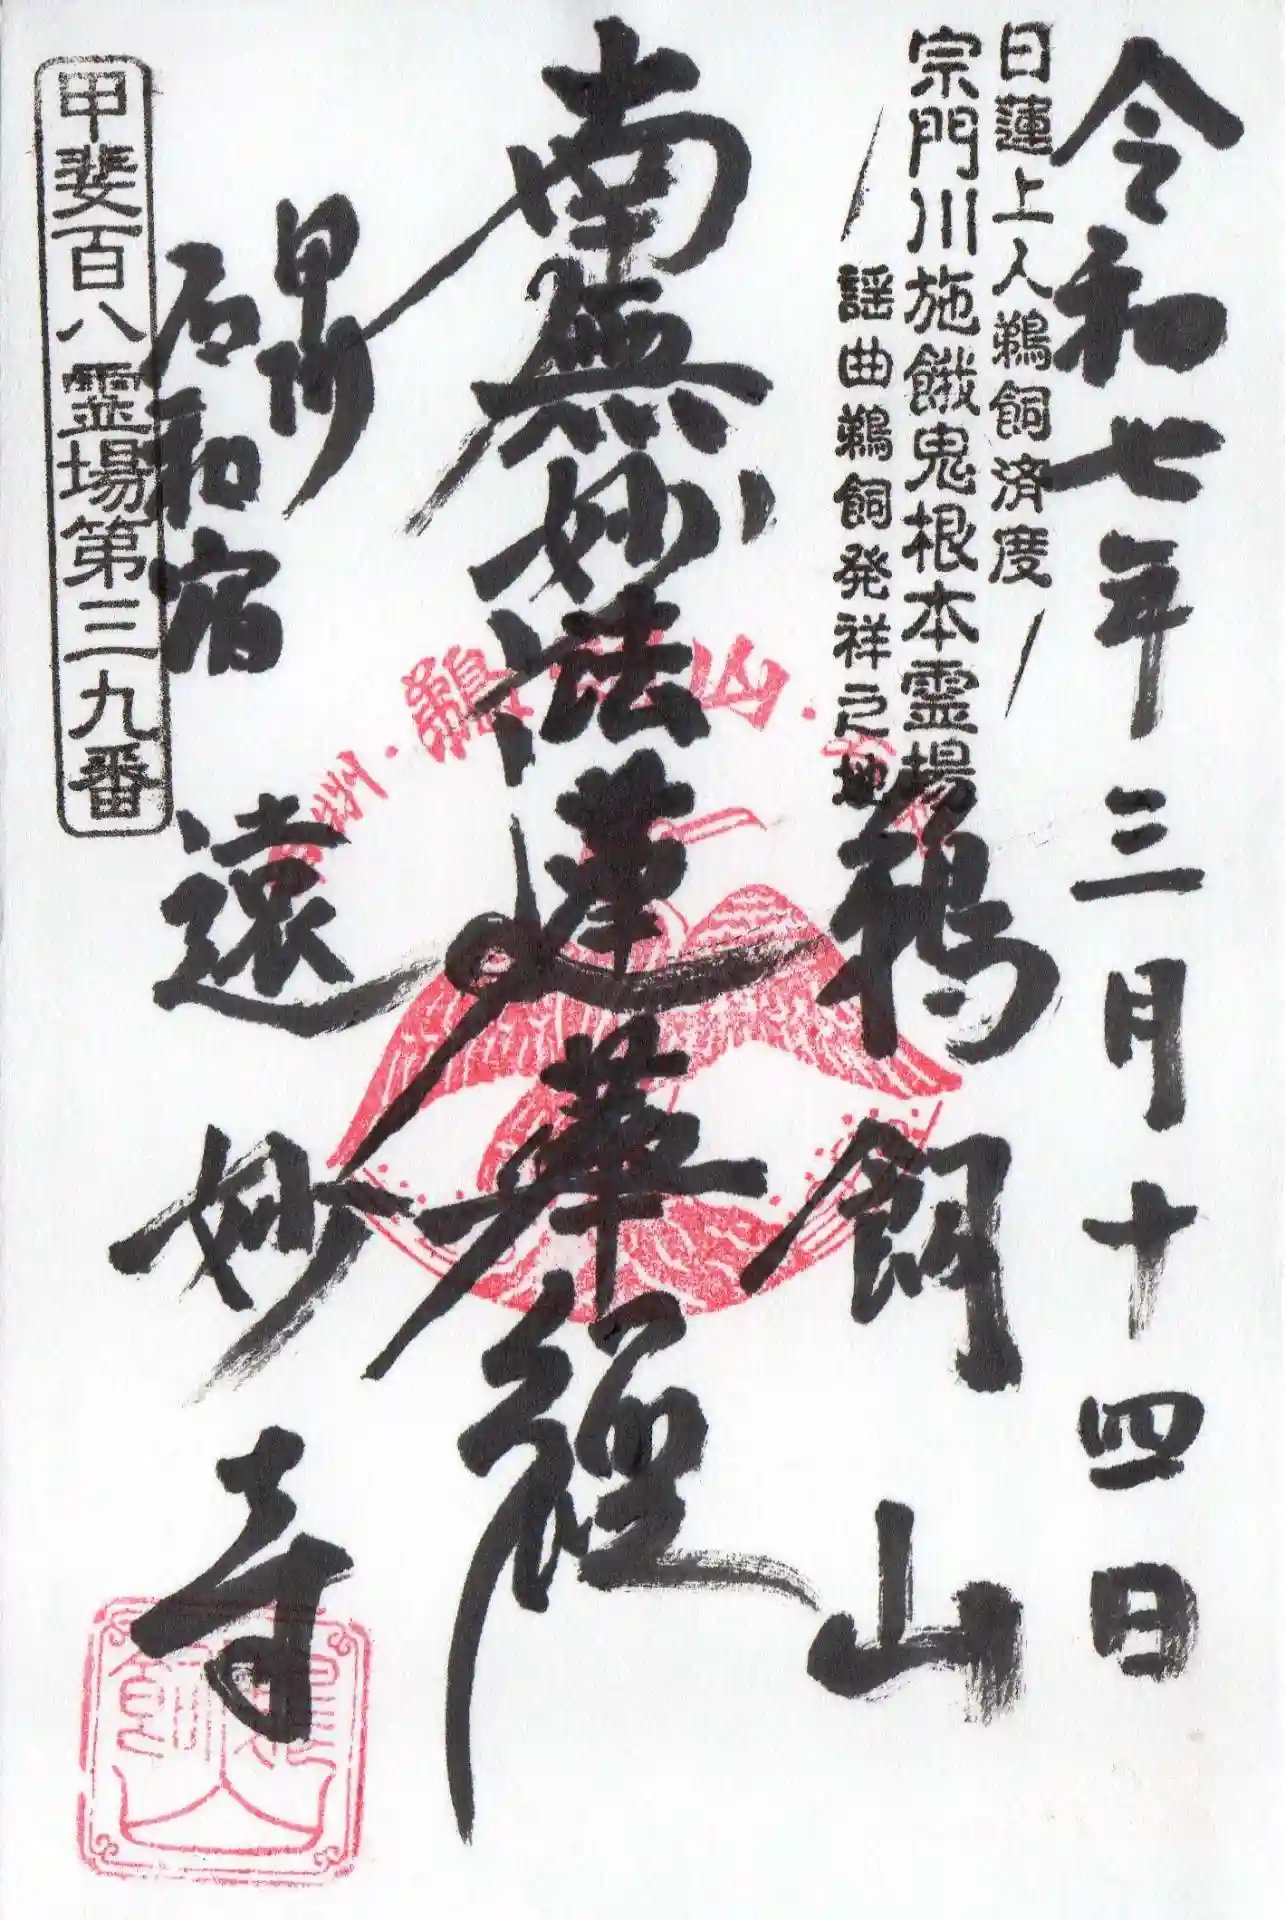 令和七年三月十四日
日蓮上人鵜飼済度
宗門川施餓鬼根本霊場
謡曲鵜飼発祥之地
鵜飼山
南無妙法蓮華經
甲州
石和宿
遠妙寺
甲斐百八霊場第三九番